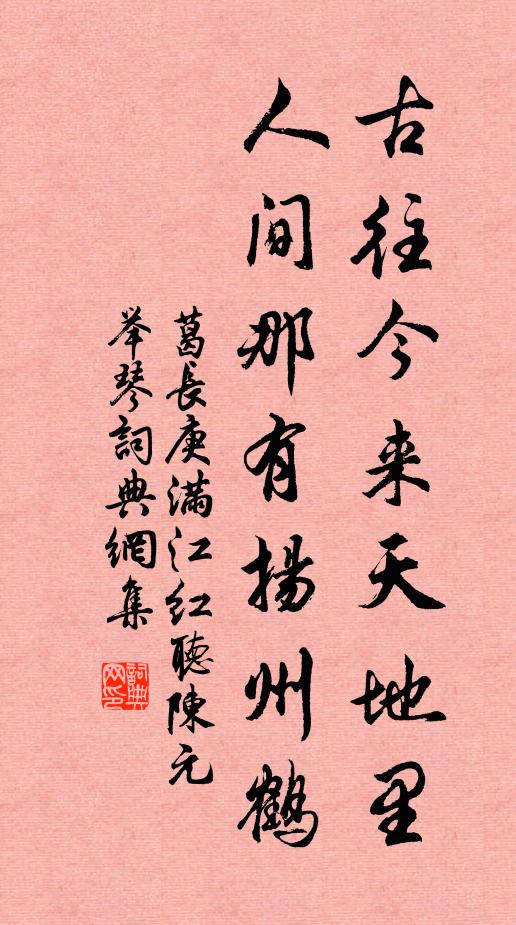 古往今来天地里
人间那有揚州鶴
葛長庚满江红聽陳元
举琴詞典網集
詞典网印